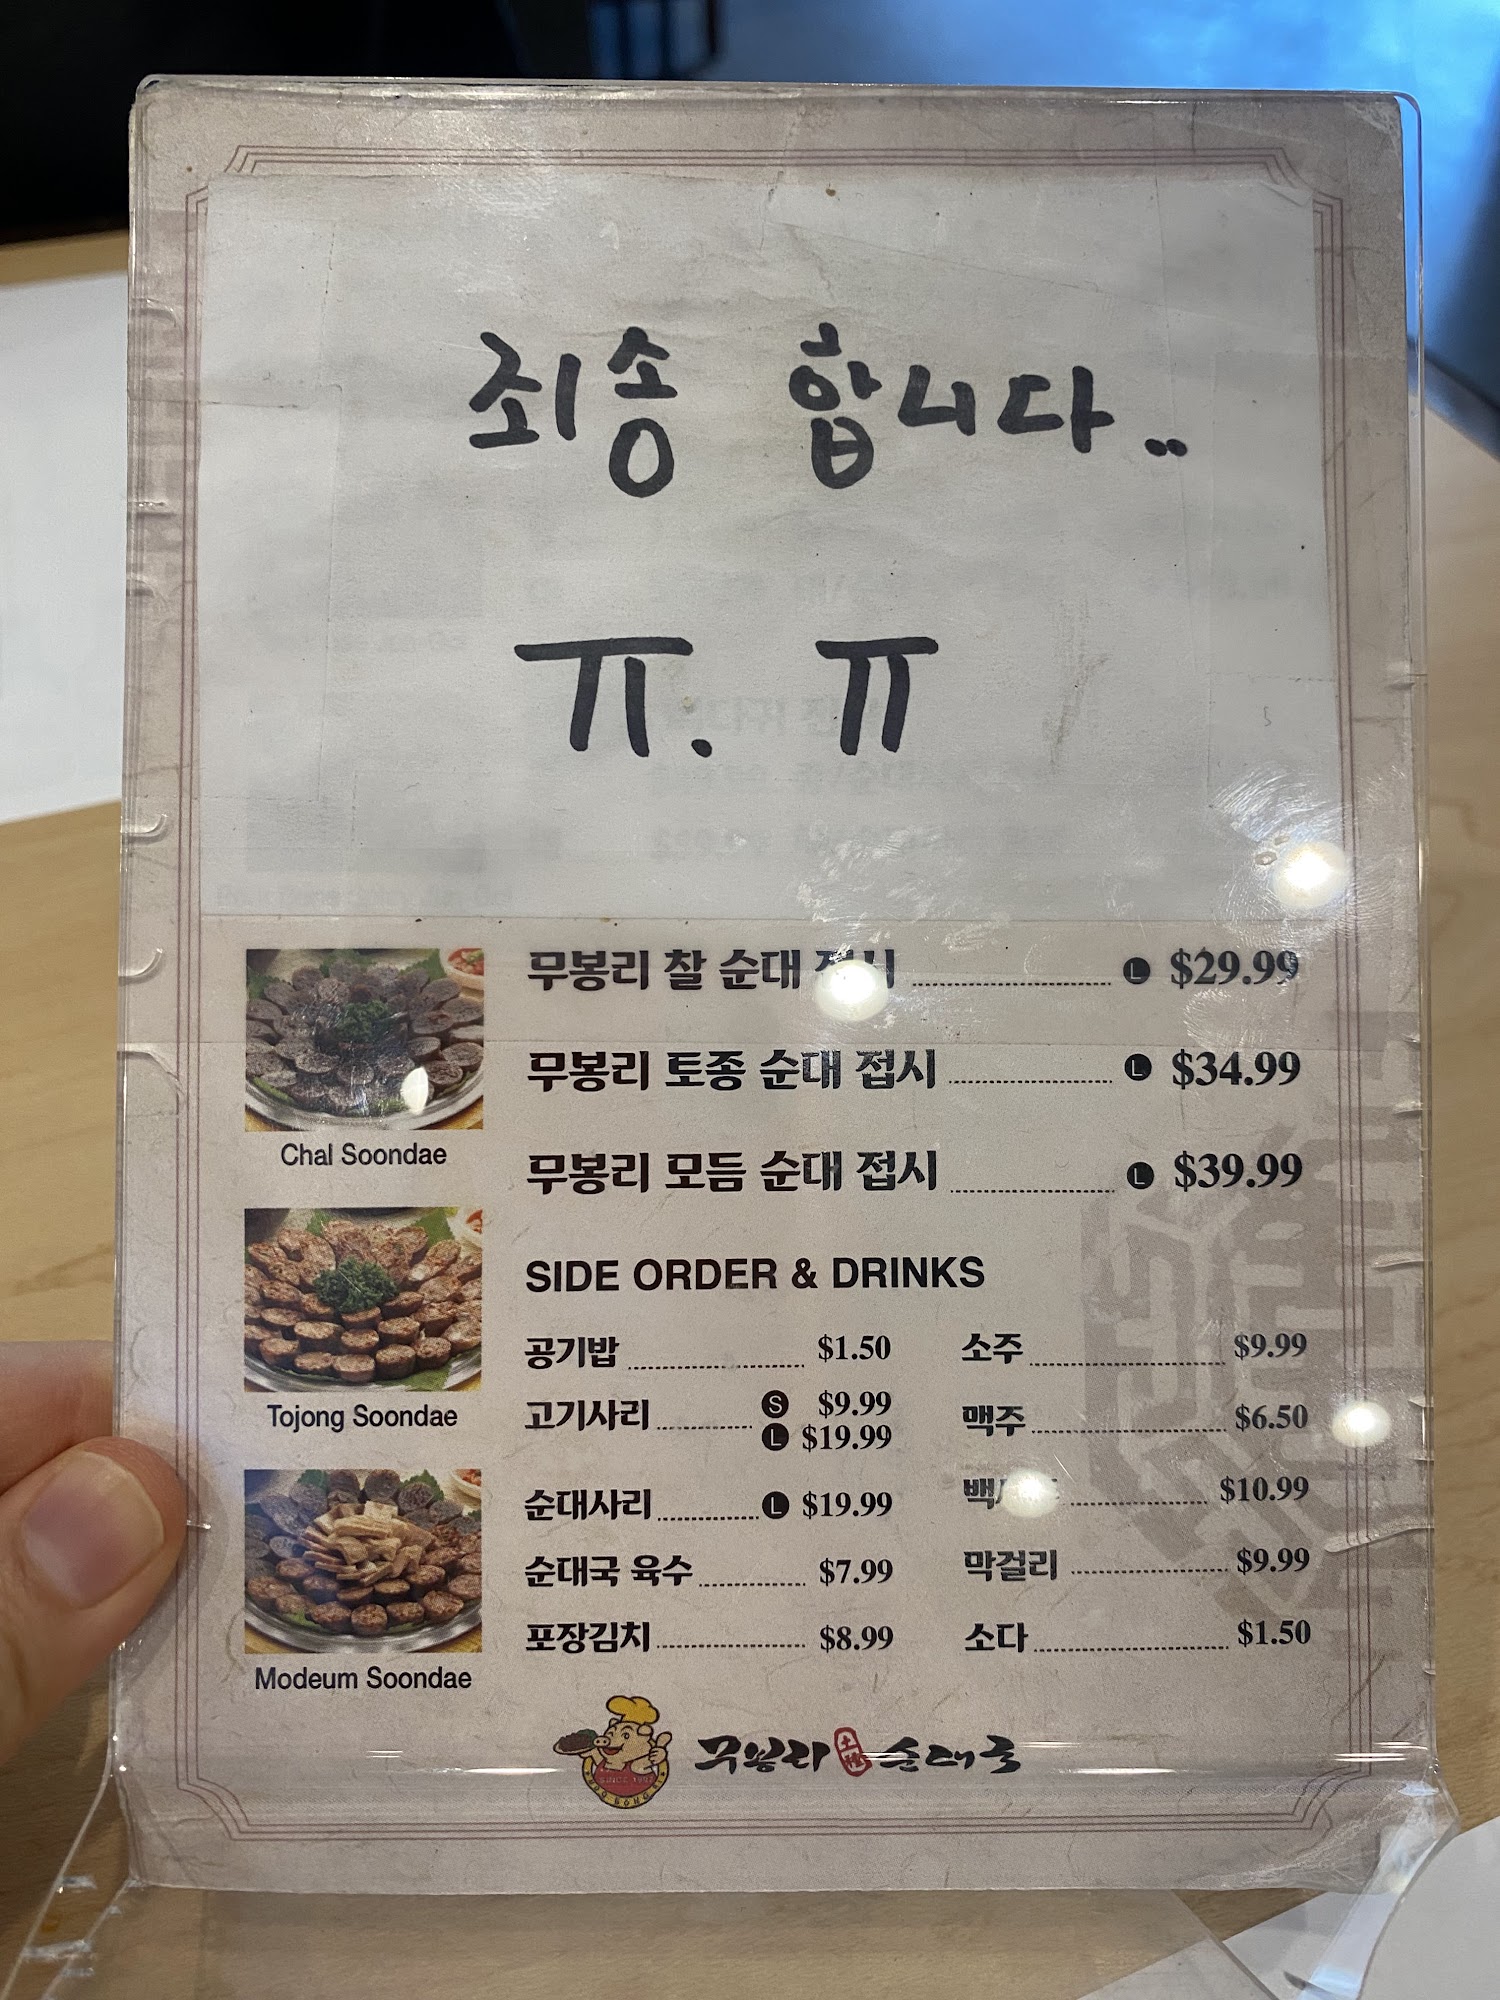 죄송 합니다..
ㅠ.ㅠ
무봉리 찰 순대 접시 Ⓛ $29.99
무봉리 토종 순대 접시 Ⓛ $34.99
무봉리 모듬 순대 접시 Ⓛ $39.99
Chal Soondae
Tojong Soondae
Modeum Soondae
SIDE ORDER & DRINKS
공기밥 $1.50
고기사리 Ⓢ $9.99
Ⓛ $19.99
순대사리 Ⓛ $19.99
순대국 육수 $7.99
포장김치 $8.99
소주 $9.99
맥주 $6.50
$10.99
막걸리 $9.99
소다 $1.50
무봉리 순대국